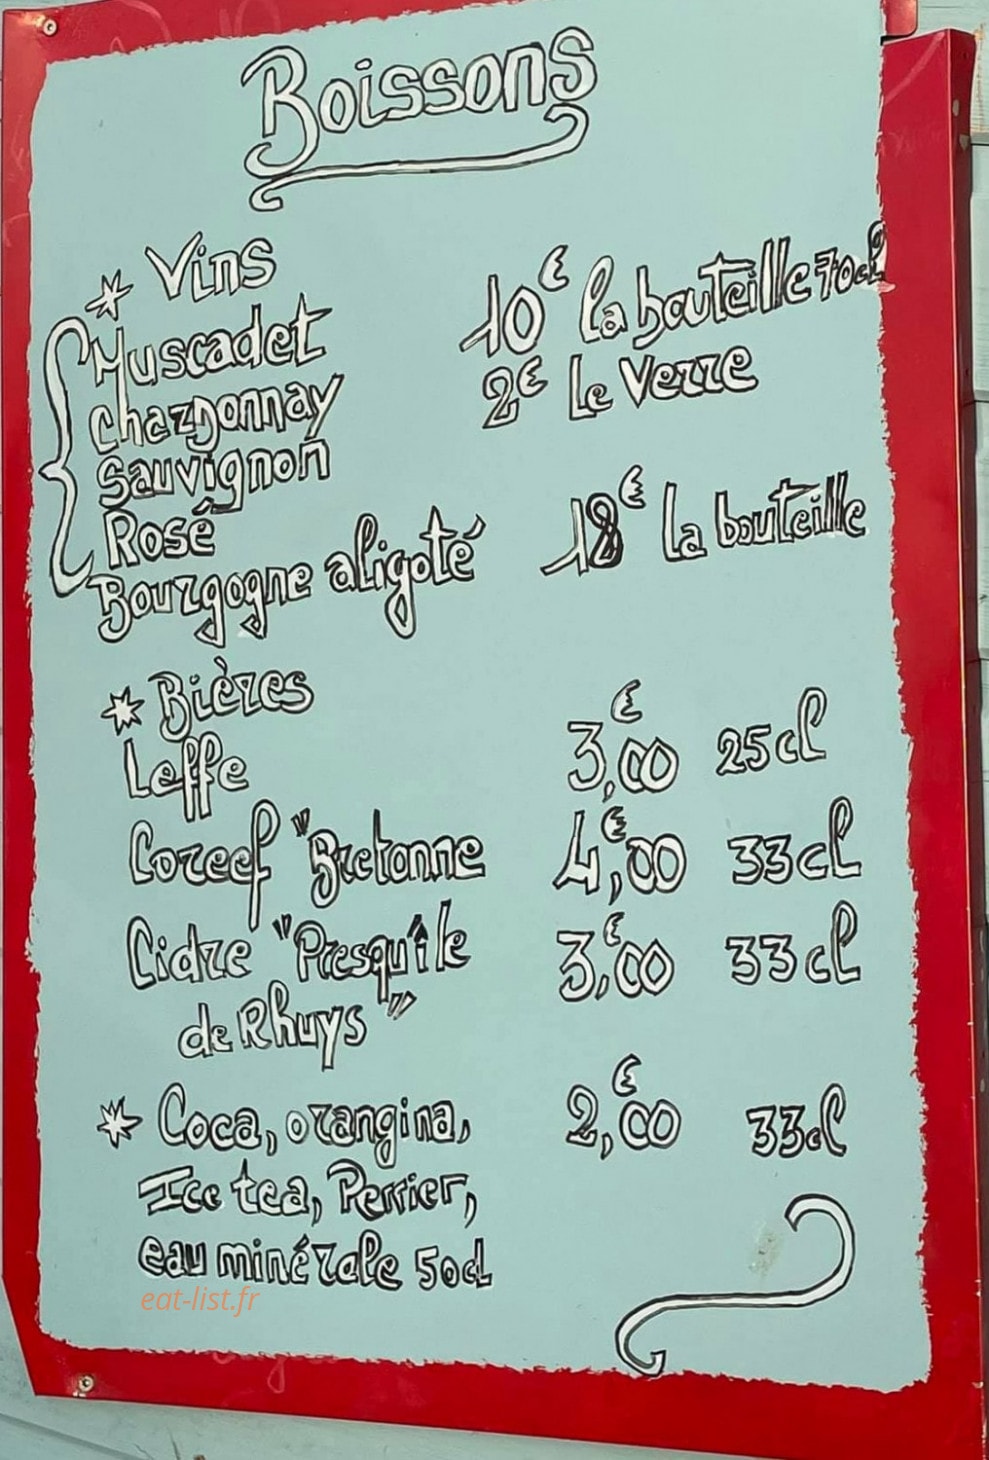 Boissons
* Vins
Muscadet 10€ la bouteille 70cl
Chardonnay 2€ Le verre
Sauvignon
Rosé 18€ la bouteille
Bourgogne aligoté
* Bières
Leffe 3,00€ 25cl
Coreef "Bretonne 4,00€ 33cl
Cidre "Presqu'île 3,00€ 33cl
de Rhuys"
* Coca, orangina, 2,00€ 33cl
Ice tea, Perrier,
eau minérale 50cl
eat-list.fr